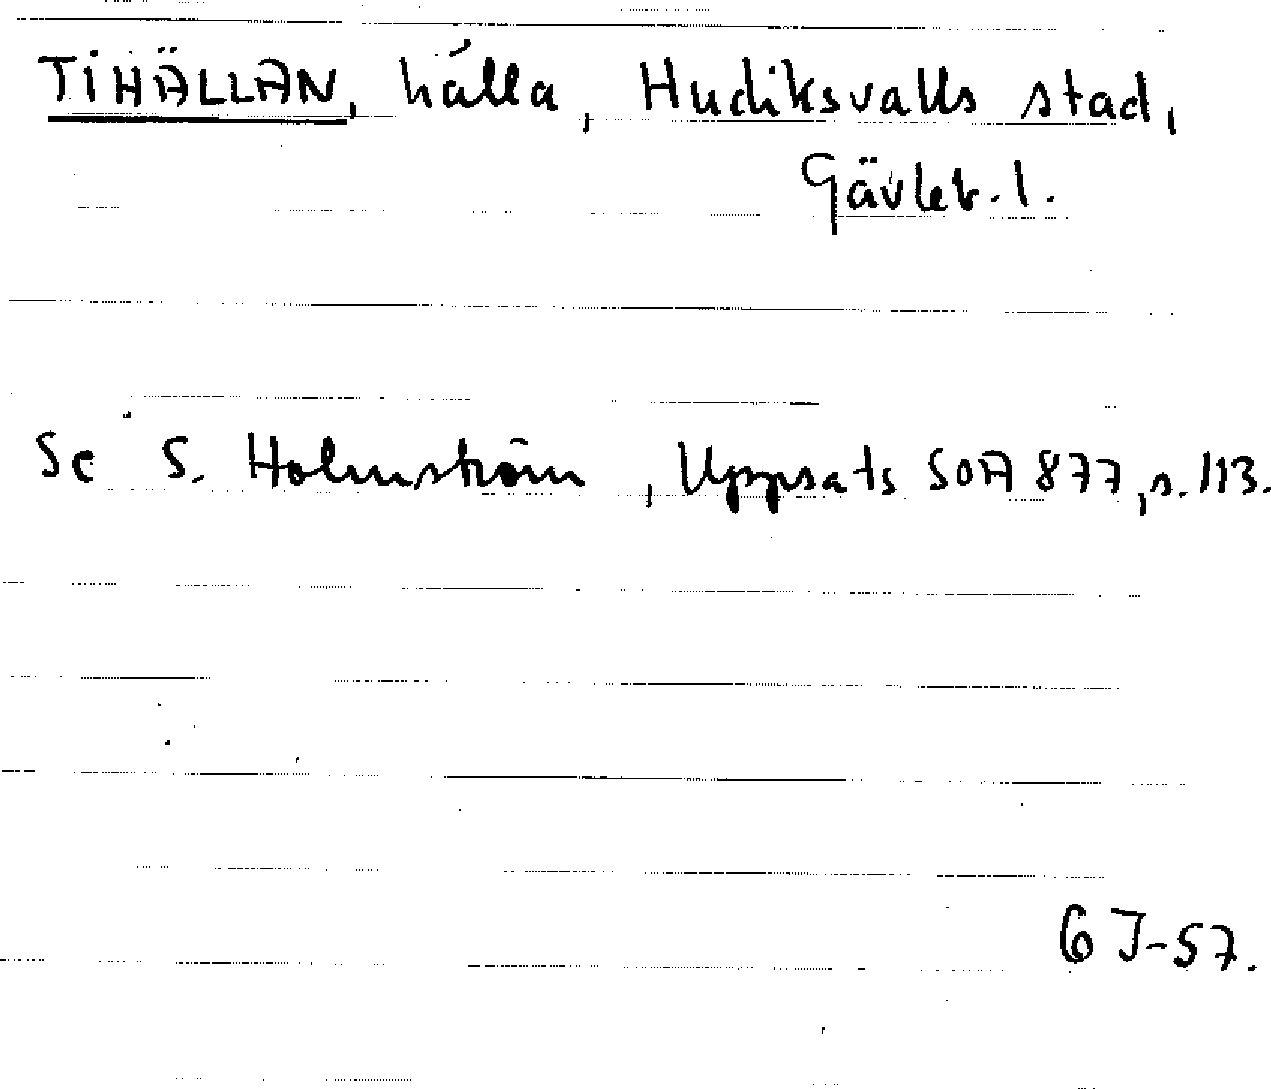 TIHÄLLAN, hälla, Hudiksvalls stad,
Gävleb. l.
Se S. Holmström, Uppsats SOA 877, s. 113.
GJ-57.